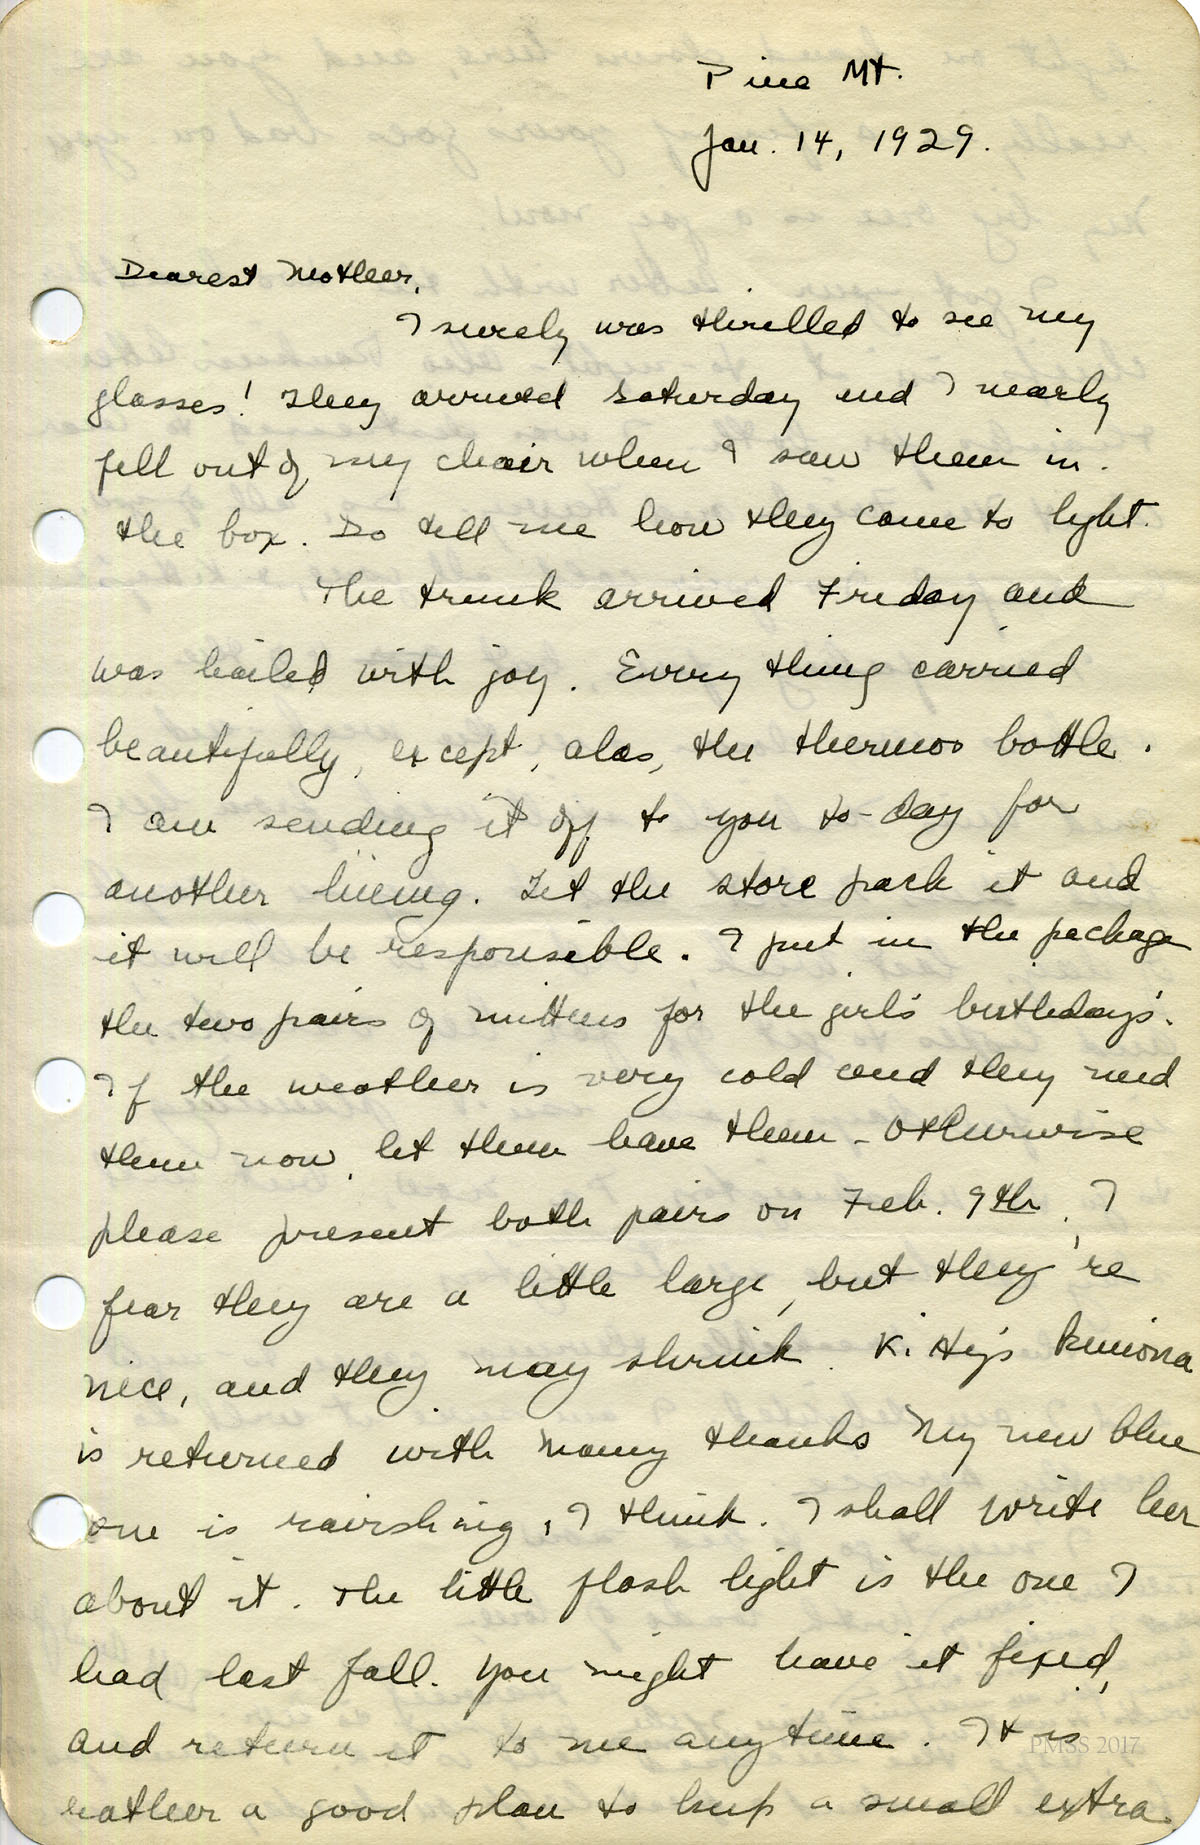 Pine Mt.
Jan. 14, 1929.
Dearest Mother,
I surely was thrilled to see my
glasses! They arrived Saturday and I nearly
fell out of my chair when I saw them in
the box. Do tell me how they came to light.
The trunk arrived Friday and
was hailed with joy. Every thing carried
beautifully, except, alas, the thermos bottle.
I am sending it off to you to-day for
another lining. Let the store pack it and
it will be responsible. I put in the package
the two pairs of mittens for the girls' birthdays.
If the weather is very cold and they need
them now, let them have them - Otherwise
please present both pairs on Feb. 9th. I
fear they are a little large, but they're
nice, and they may shrink. Kitty's kimona
is returned with many thanks My new blue
one is ravishing, I think. I shall write her
about it. The little flash light is the one I
had last fall. You might have it fixed,
and return it to me anytime. It is
rather a good plan to keep a small extra
PMSS 2017